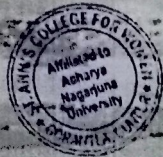 ST. ANN'S COLLEGE FOR WOMEN
Affiliated to
Acharya
Nagarjuna
University
★ GORANTLA, GUNTUR ★